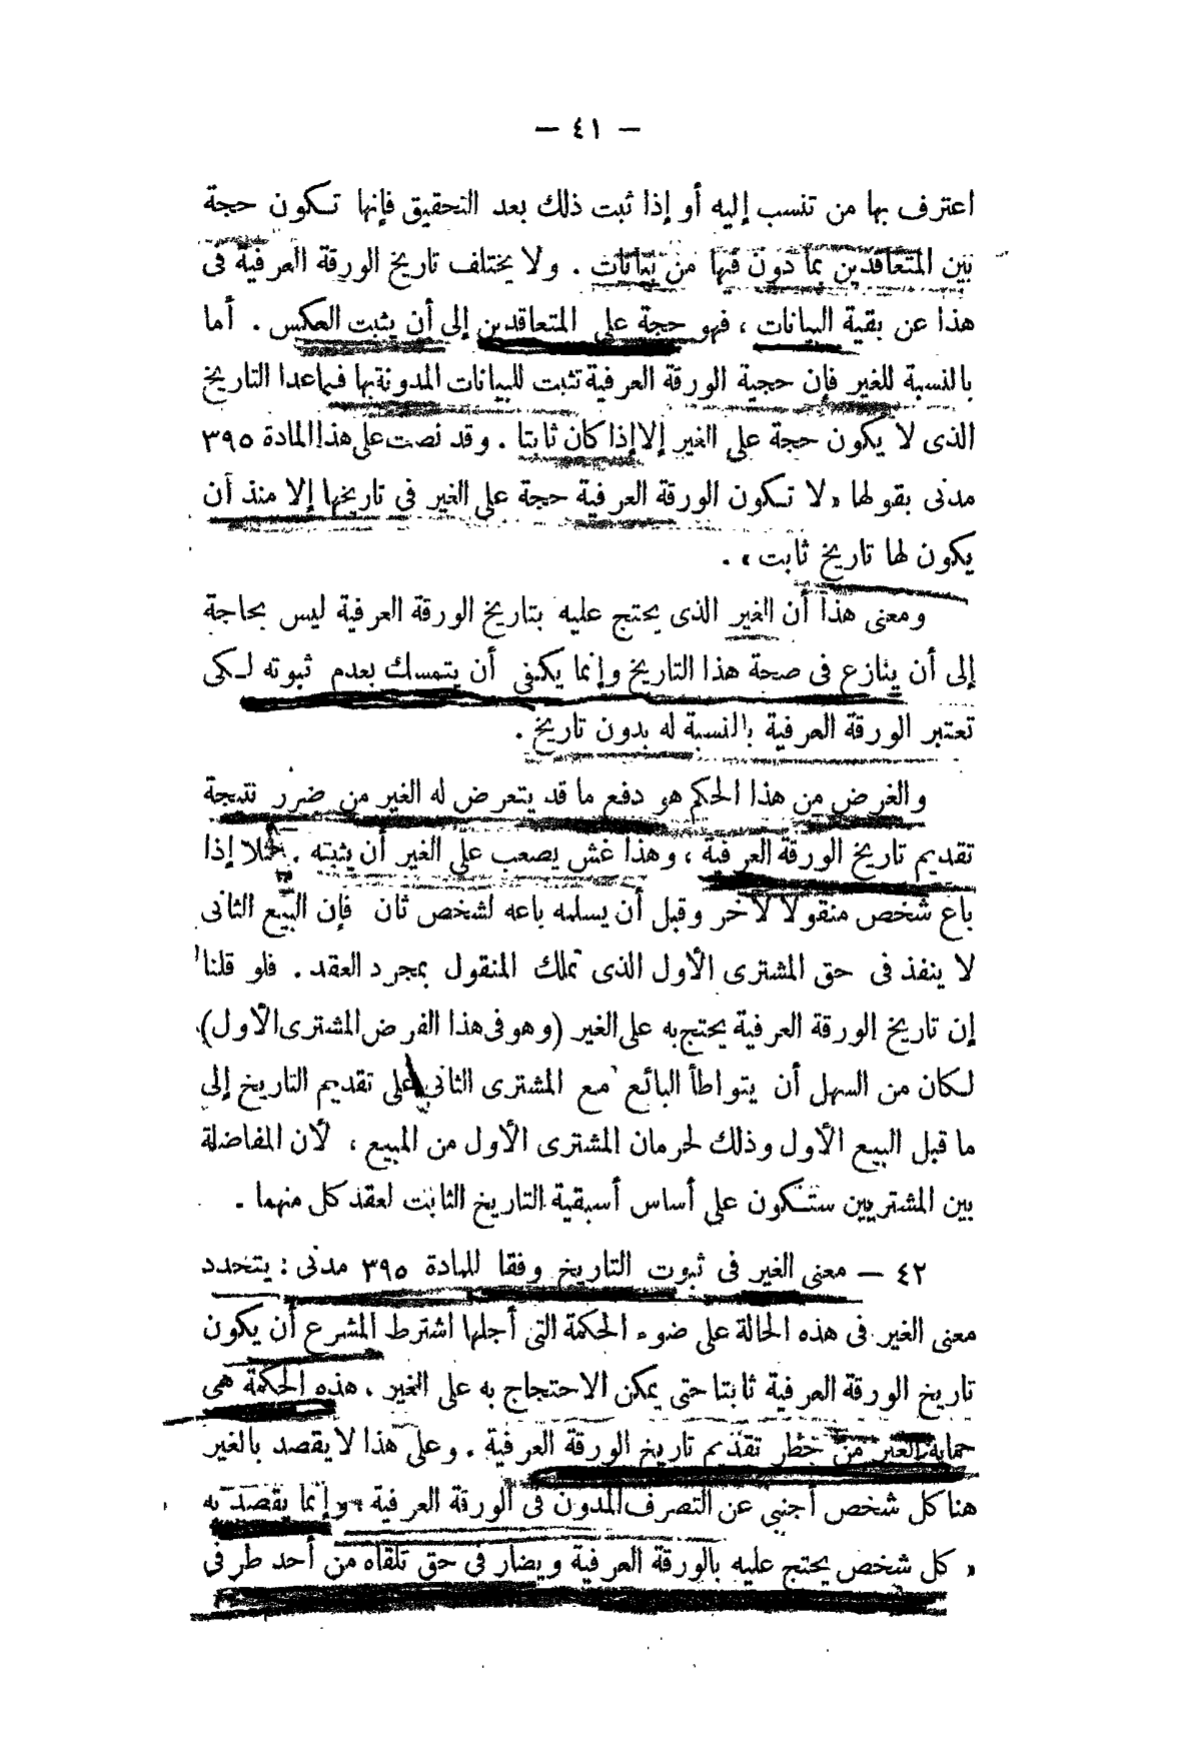 — ٤١ —
اعترف بها من تنسب إليه أو إذا ثبت ذلك بعد التحقيق فإنها تكون حجة
بين المتعاقدين بما دون فيها من بيانات . ولا يختلف تاريخ الورقة العرفية فى
هذا عن بقية البيانات ، فهو حجة على المتعاقدين إلى أن يثبت العكس . أما
بالنسبة للغير فإن حجية الورقة العرفية تثبت للبيانات المدونة بها فيما عدا التاريخ
الذى لا يكون حجة على الغير إلا إذا كان ثابتا . وقد نصت على هذا المادة ٣٩٥
مدنى بقولها « لا تكون الورقة العرفية حجة على الغير فى تاريخها إلا منذ أن
يكون لها تاريخ ثابت » .
ومعنى هذا أن الغير الذى يحتج عليه بتاريخ الورقة العرفية ليس بحاجة
إلى أن ينازع فى صحة هذا التاريخ وإنما يكفى أن يتمسك بعدم ثبوته لكى
تعتبر الورقة العرفية بالنسبة له بدون تاريخ .
والغرض من هذا الحكم هو دفع ما قد يتعرض له الغير من ضرر نتيجة
تقديم تاريخ الورقة العرفية ، وهذا غش يصعب على الغير أن يثبته . فمثلا إذا
باع شخص منقولا لآخر وقبل أن يسلمه باعه لشخص ثان فإن البيع الثانى
لا ينفذ فى حق المشترى الأول الذى تملك المنقول بمجرد العقد . فلو قلنا
إن تاريخ الورقة العرفية يحتج به على الغير (وهو فى هذا الفرض المشترى الأول)
لكان من السهل أن يتواطأ البائع مع المشترى الثانى على تقديم التاريخ إلى
ما قبل البيع الأول وذلك لحرمان المشترى الأول من المبيع ، لأن المفاضلة
بين المشتريين ستكون على أساس أسبقية التاريخ الثابت لعقد كل منهما .
٤٢ — معنى الغير فى ثبوت التاريخ وفقا للمادة ٣٩٥ مدنى : يتحدد
معنى الغير فى هذه الحالة على ضوء الحكمة التى أجلها اشترط المشرع أن يكون
تاريخ الورقة العرفية ثابتا حتى يمكن الاحتجاج به على الغير . هذه الحكمة هى
حماية الغير من خطر تقديم تاريخ الورقة العرفية . وعلى هذا لا يقصد بالغير
هنا كل شخص أجنبى عن التصرف المدون فى الورقة العرفية ، وإنما يقصد به
« كل شخص يحتج عليه بالورقة العرفية ويضار فى حق تلقاه من أحد طرفى